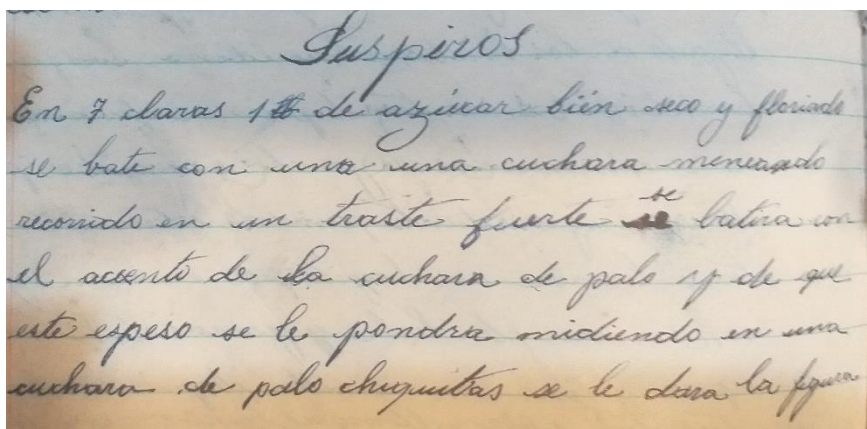 Suspiros
En 7 claras 1 ℔ de azúcar bién seco y floriado
se bate con una una cuchara meneando
recorrido en un traste fuerte se batira con
el acento de la cuchara de palo y de que
este espeso se le pondra midiendo en una
cuchara de palo chiquitas se le dara la figura